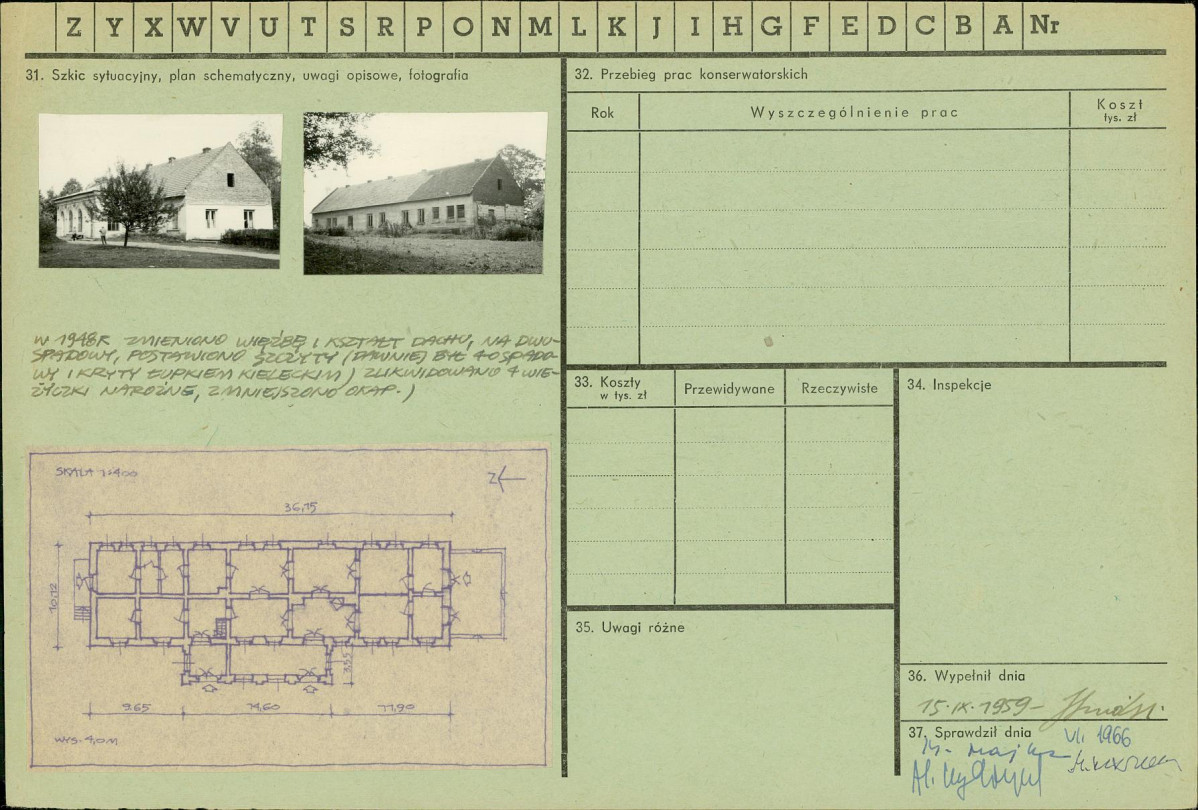 Z Y X W V U T S R P O N M L K J I H G F E D C B A Nr
31. Szkic sytuacyjny, plan schematyczny, uwagi opisowe, fotografia
W 1948R ZMIENIONO WIĘŹBĘ I KSZTAŁT DACHU, NA DWU-
SPADOWY, POSTAWIONO SZCZYTY (DAWNIEJ BYŁ 4OSPADO-
WY I KRYTY ŁUPKIEM KIELECKIM) ZLIKWIDOWANO 4 WIE-
ŻYCZKI NAROŻNE, ZMNIEJSZONO OKAP.)
SKALA 1:400
Z
36,15
10,12
3,55
9.65 14,60 11,90
WYS. 4,0 M
32. Przebieg prac konserwatorskich
Rok Wyszczególnienie prac Koszt
tys. zł
33. Koszty
w tys. zł
Przewidywane Rzeczywiste
34. Inspekcje
35. Uwagi różne
36. Wypełnił dnia
15.IX.1959-
37. Sprawdził dnia
VI. 1966